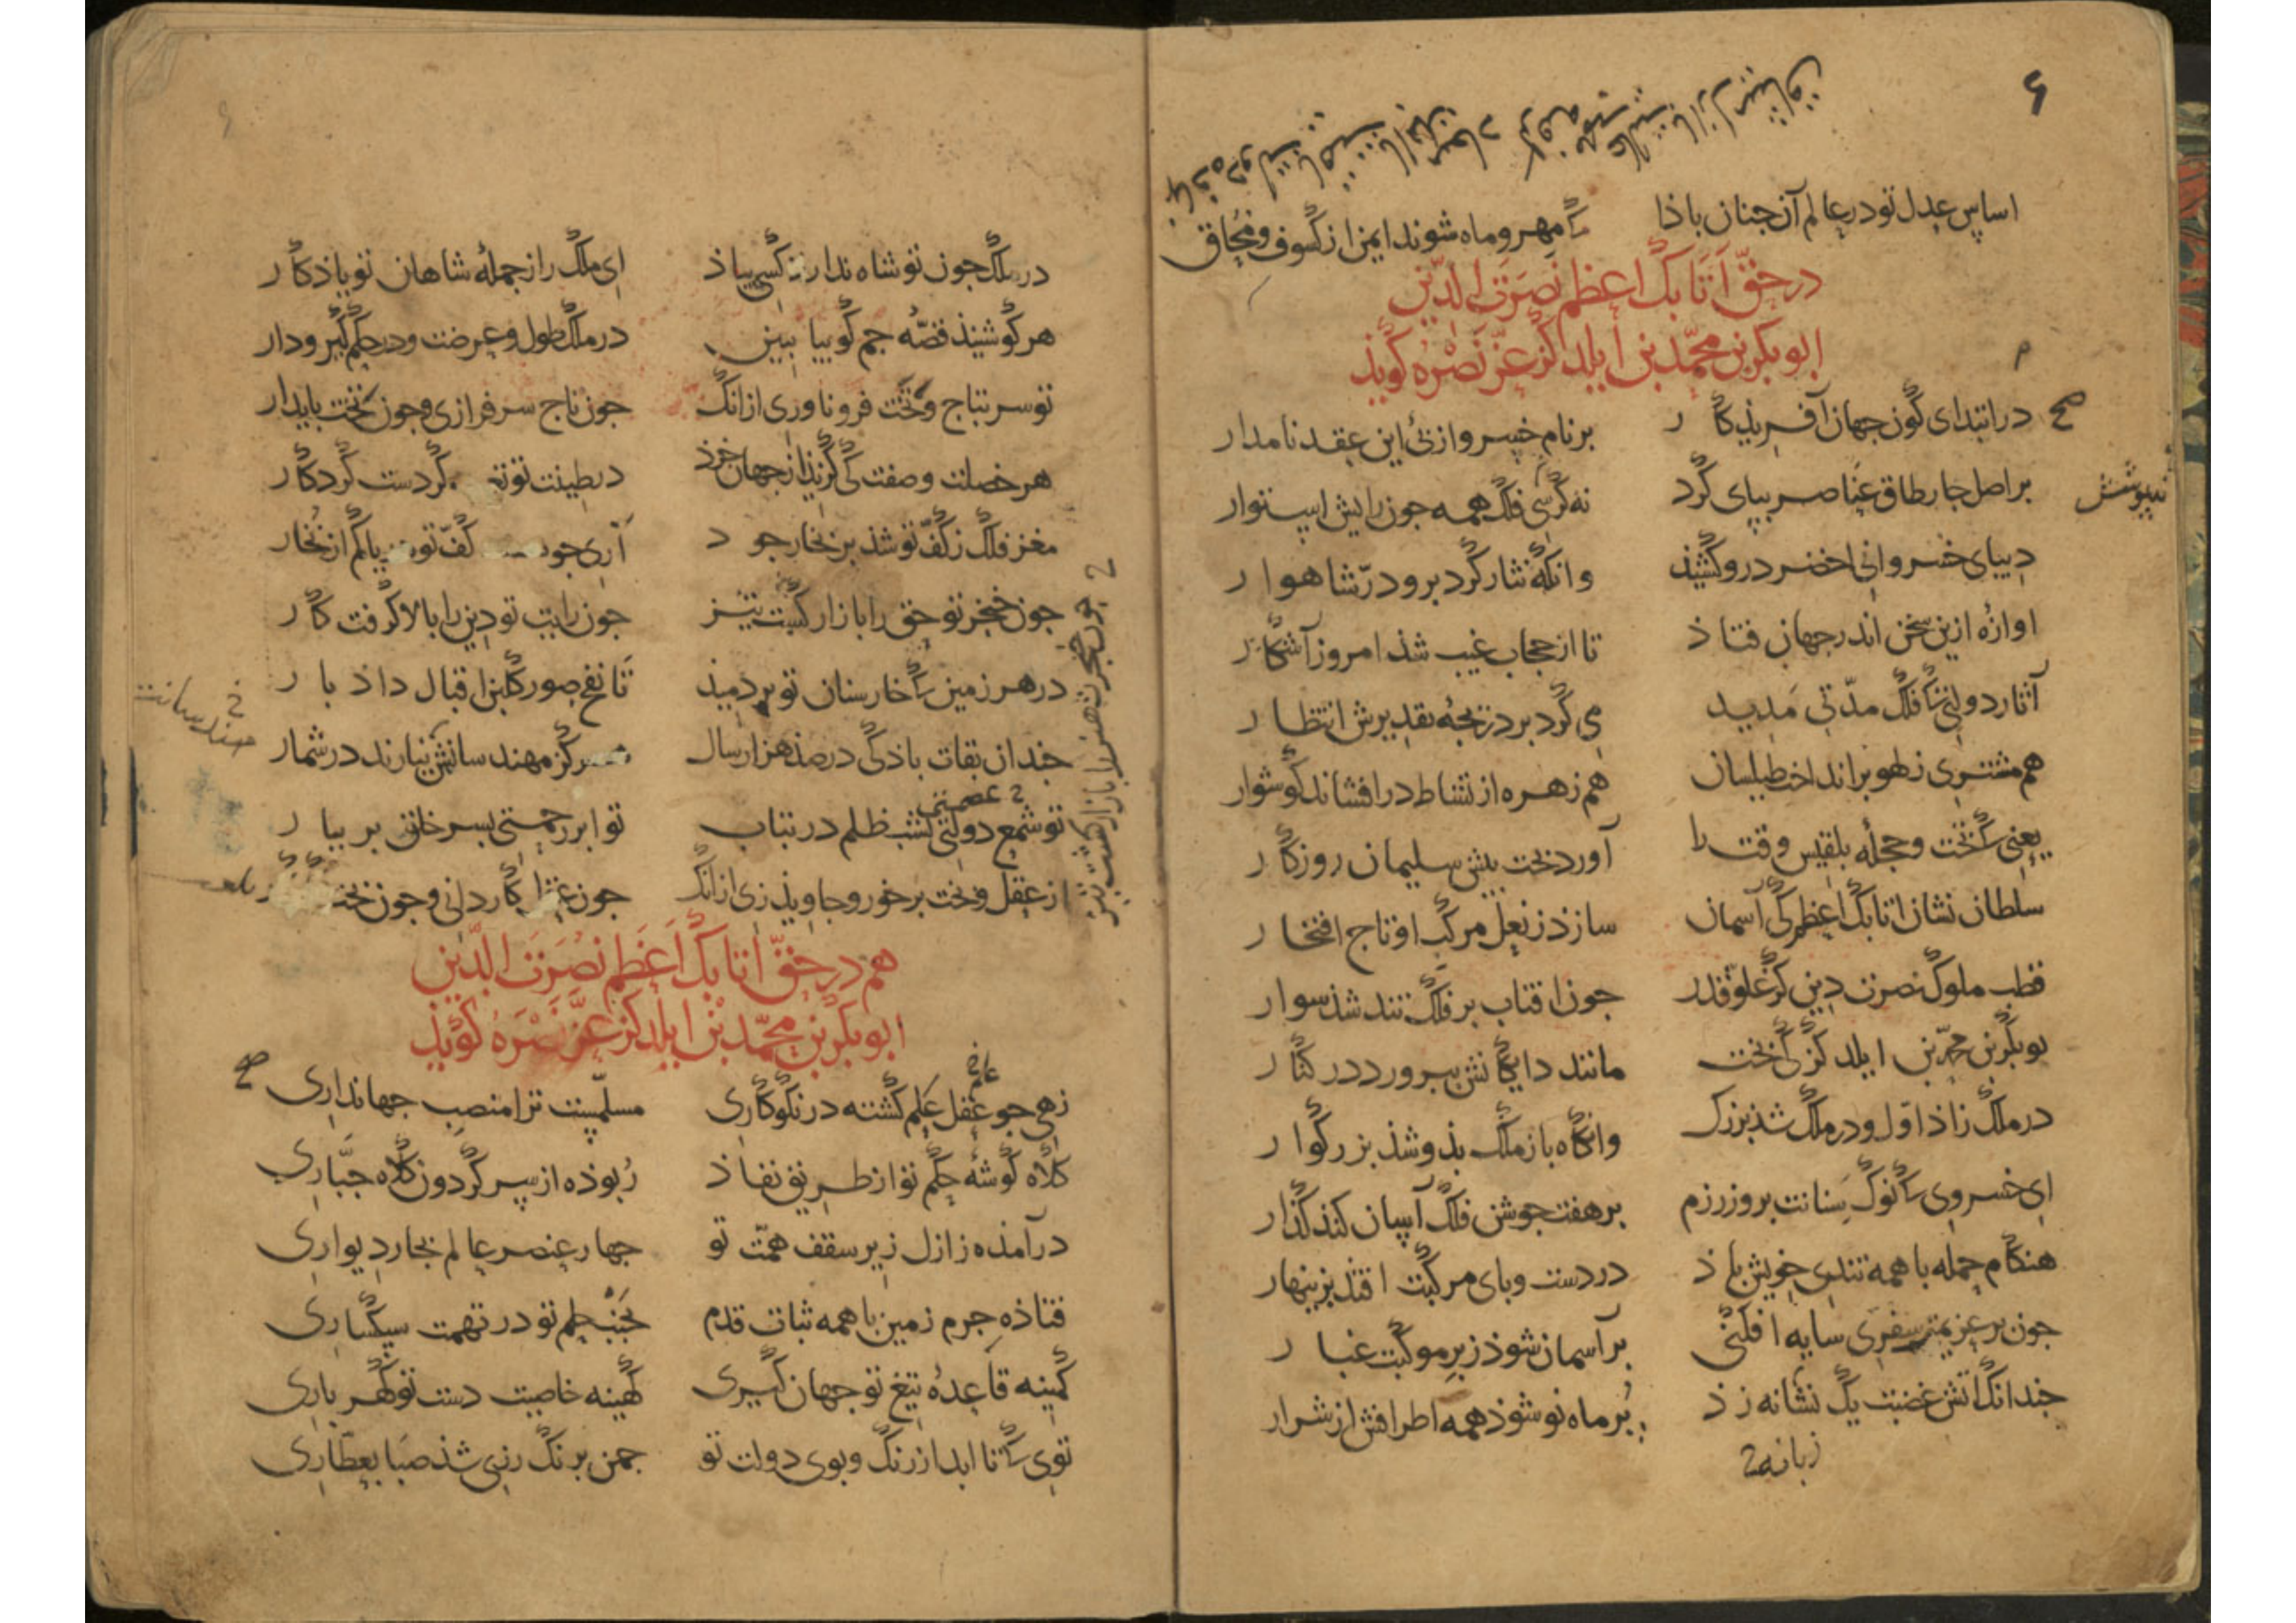 اساس عدل تو در عالم آن جنان باذا
کـ مهر و ماه شوند ایمن از کسوف و محاق
در حقّ اَتابک اعظم نصرت الدّین
ابوبکر بن محمّد بن ایلدکز عزّ نصره کَویذ
در ابتدای کون جهان آفریذکار
بر نام خسرو از بئ این عقد نامدار
بر اصل جار طاق عناصر ببای کرد
نه کرسی فلک همه جون رایش استوار
دیبای خسروانی اخضر درو کشیذ
وانکه نثار کرد برو درّ شاهوار
اوازهٔ ازین سخن اندر جهان فتاذ
تا از حجاب غیب شذ امروز آشکار
آثار دولتی کـ فلک مدّتی مَدید
می کرد بر دریجهٔ تقدیرش انتظار
هم مشتری ز لهو برانداخت طیلسان
هم زهره از نشاط درافشاند کوشوار
یعنی کـ تخت و حجلهٔ بلقیس وقت را
آورد بخت بیش سلیمان روزکار
سلطان نشان اتابک اعظم کی آسمان
سازذ ز نعل مرکب او تاج افتخار
قطب ملوک نصرت دین کز علوّ قدر
جون افتاب بر فلک تند شذ سوار
بوبکر بن محمّد بن ایلدکز کـ بخت
مانند دایکانش ببرورد در کنار
در ملک زاذ اوّل و در ملک شذ بزرک
وانکاه باز ملک بذو شذ بزرکوار
ای خسروی کـ نوک سنانت بروز رزم
بر هفت جوشن فلک آسان کند کذار
هنکام حمله با همه تندی خویش باذ
در دست و بای مرکبت افتذ بزینهار
جون بر عزیمت سفری سایه افکنی
بر آسمان شوذ ز بر موکبت غبار
جندانک اتش غضبت یک نشانه زذ
بر ماه نو شوذ همه اطرافش از شرار
زبانه
در ملک جون تو شاه ندارذ کسی بیاذ
ای ملک را ز جملهٔ شاهان تو یاذکار
هر کو شنیذ قصّهٔ جم کو بیا ببین
در ملک طول و عرضت و در حکم کیر و دار
تو سر بتاج و تخت فرو ناوری از انک
جون تاج سرفرازی و جون تخت بایدار
هر خصلت و صفت کی کزیذ از جهان خرذ
در طینت تو کردست کردکار
مغز فلک ز کفّ تو شذ بر بخار جود
آری جو کفّ تو یا کم از بخار
جون خنجر تو حق را بازار کشت تیز
جون رایت تو دین را بالا کرفت کار
در هر زمین کـ خار سنان تو بردمیذ
تا نفخ صور کلبن اقبال داذ بار
جندان بقات باذ کی در صذ هزار سال
هرکز مهندسانش نیارند در شمار
تو شمع دولتی بشب ظلم در بتاب
تو ابر رحمتی بسر خلق بر ببار
از عقل و بخت برخور و جاویذ زی از انک
جون عقل کاردانی و جون بخت
هم در حقّ اتابک اَعظم نصرت الدّین
ابوبکر بن محمّد بْن ایلدکز عزّ نصره کَویذ
زهی جو عقل عَلم کشته در نکوکاری
مسلّمست ترا منصب جهانداری
کلاه کوشهٔ حکم تو از طریق نفاذ
ربوذه از سر کردون کلاه جبّاری
درآمذه ز ازل زیر سقف همّت تو
جهار عنصر عالم بجار دیواری
فتاذه جرم زمین با همه ثبات قدم
بجنب حلم تو در تهمت سبکساری
کمینه قاعدهٔ تیغ تو جهان کیری
کهینه خاصیت دست تو کهر باری
توی کـ تا ابد از رنک و بوی دولت تو
جمن برنک رزی شذ صبا بعطّاری